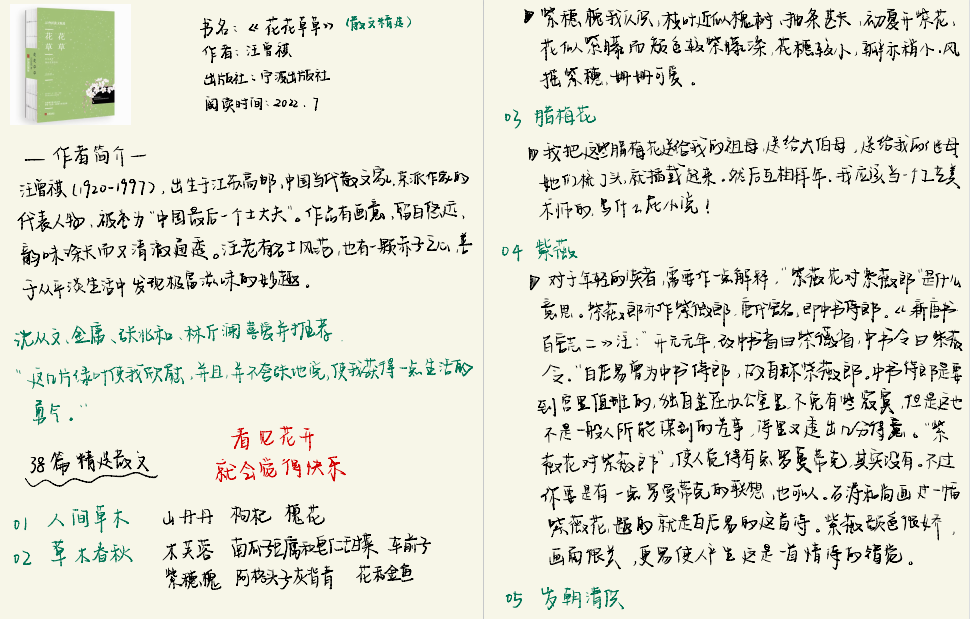 花花
草草
书名：《花花草草》（散文精选）
作者：汪曾祺
出版社：宁波出版社
阅读时间：2022.7
— 作者简介 —
汪曾祺（1920-1997），出生于江苏高邮，中国当代散文家，京派作家的
代表人物，被誉为“中国最后一个士大夫”。作品有画意，
韵味悠长而又清澈通透。汪老有名士风范，也有一颗赤子之心，善
于从平淡生活中发现极富滋味的妙趣。
沈从文、金庸、张兆和、林斤澜喜爱并推荐
“这几片绿叶使我欣慰，并且，并不夸张地说，使我获得一点生活的
勇气。”
看见花开
就会觉得快乐
38篇精选散文
01 人间草木 山丹丹 枸杞 槐花
02 草木春秋 木芙蓉 南瓜子豆腐和皂仁甜菜 车前子
紫穗槐 阿格头子灰背青 花和金鱼
紫穗槐我认识，枝叶近似槐树，抽条甚长，初夏开紫花，
花似紫藤而颜色较紫藤深，花穗较小，瓣亦稍小。风
摇紫穗，姗姗可爱。
03 腊梅花
我把这些腊梅花送给我的祖母，送给大伯母，送给我的继母
她们梳了头，就插戴起来。然后互相拜年。我应该当一个工艺美
术师的，写什么屁小说！
04 紫薇
对于年轻的读者，需要作一点解释，“紫薇花对紫薇郎”是什么
意思。紫薇郎亦作紫微郎，唐代官名，即中书侍郎。《新唐书
百官志二》注：“开元元年，改中书省曰紫微省，中书令曰紫微
令。”白居易曾为中书侍郎，故自称紫薇郎。中书侍郎是要
到宫里值班的，独自坐在办公室里，不免有些寂寞，但是这也
不是一般人所能谋到的差事，诗里又透出几分得意。“紫
薇花对紫薇郎”，使人觉得有点罗曼蒂克，其实没有。不过
你要是有一点罗曼蒂克的联想，也可以。石涛和尚画过一幅
紫薇花，题的就是白居易的这首诗。紫薇颜色很娇，
画面很美，更易使人产生这是一首情诗的错觉。
05 岁朝清供